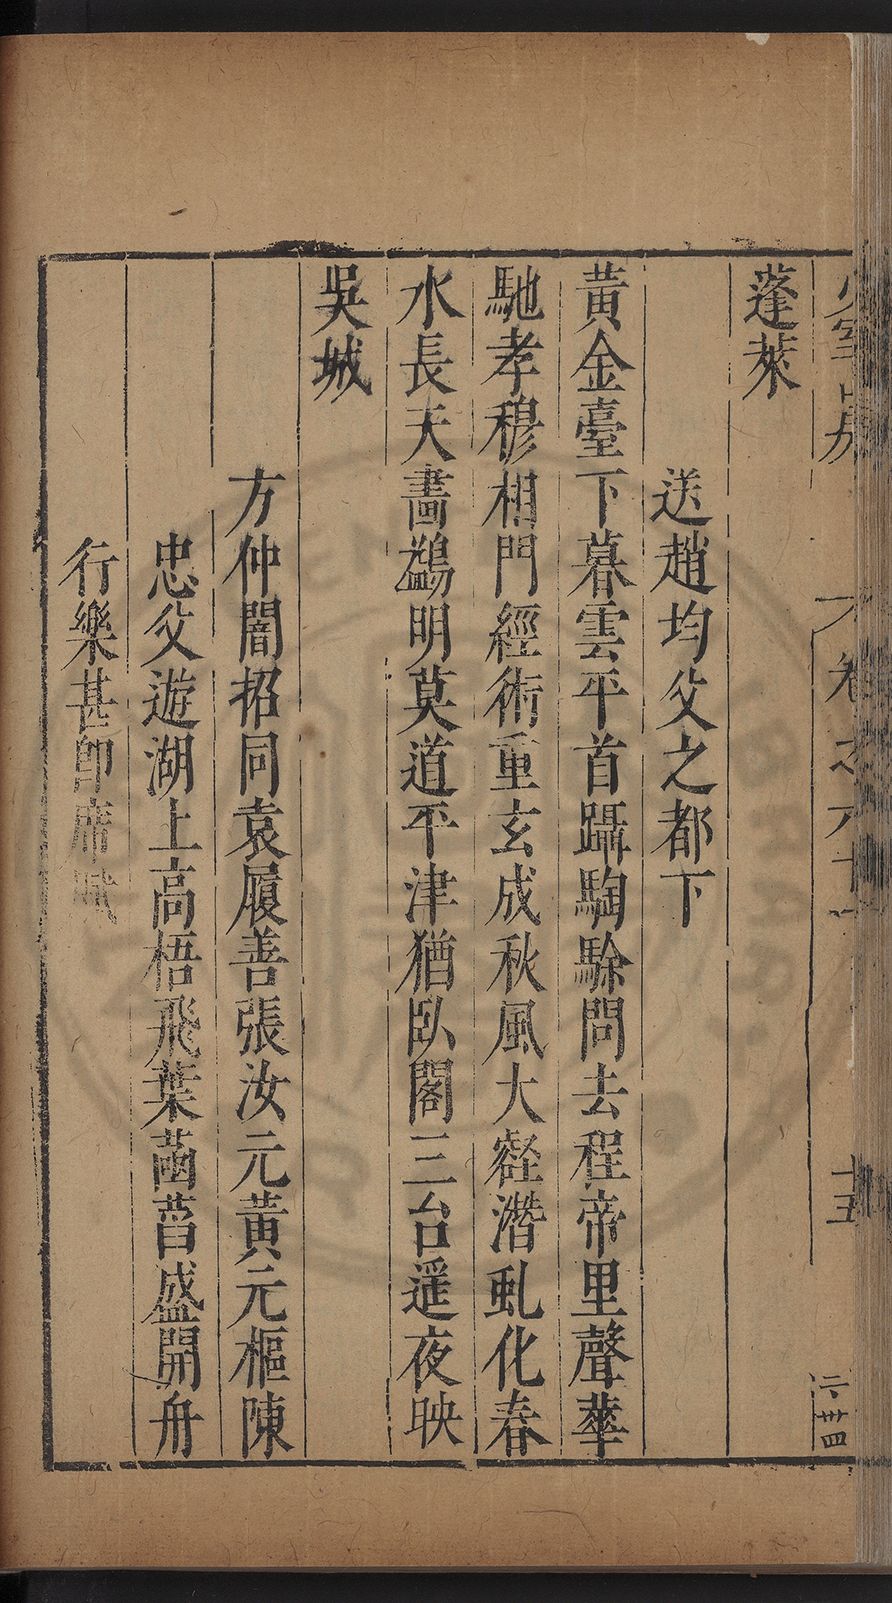 少室山房
卷之六十
十五
二卄四
蓬萊
送趙均父之都下
黃金臺下暮雲平首躡騊駼問去程帝里聲華
馳孝穆相門經術重玄成秋風大壑潛虬化春
水長天畵鷁明莫道平津猶臥閣三台遥夜映
吳城
方仲闇招同袁履善張汝元黃元樞陳
忠父遊湖上高梧飛葉菡萏盛開舟
行樂甚卽席賦